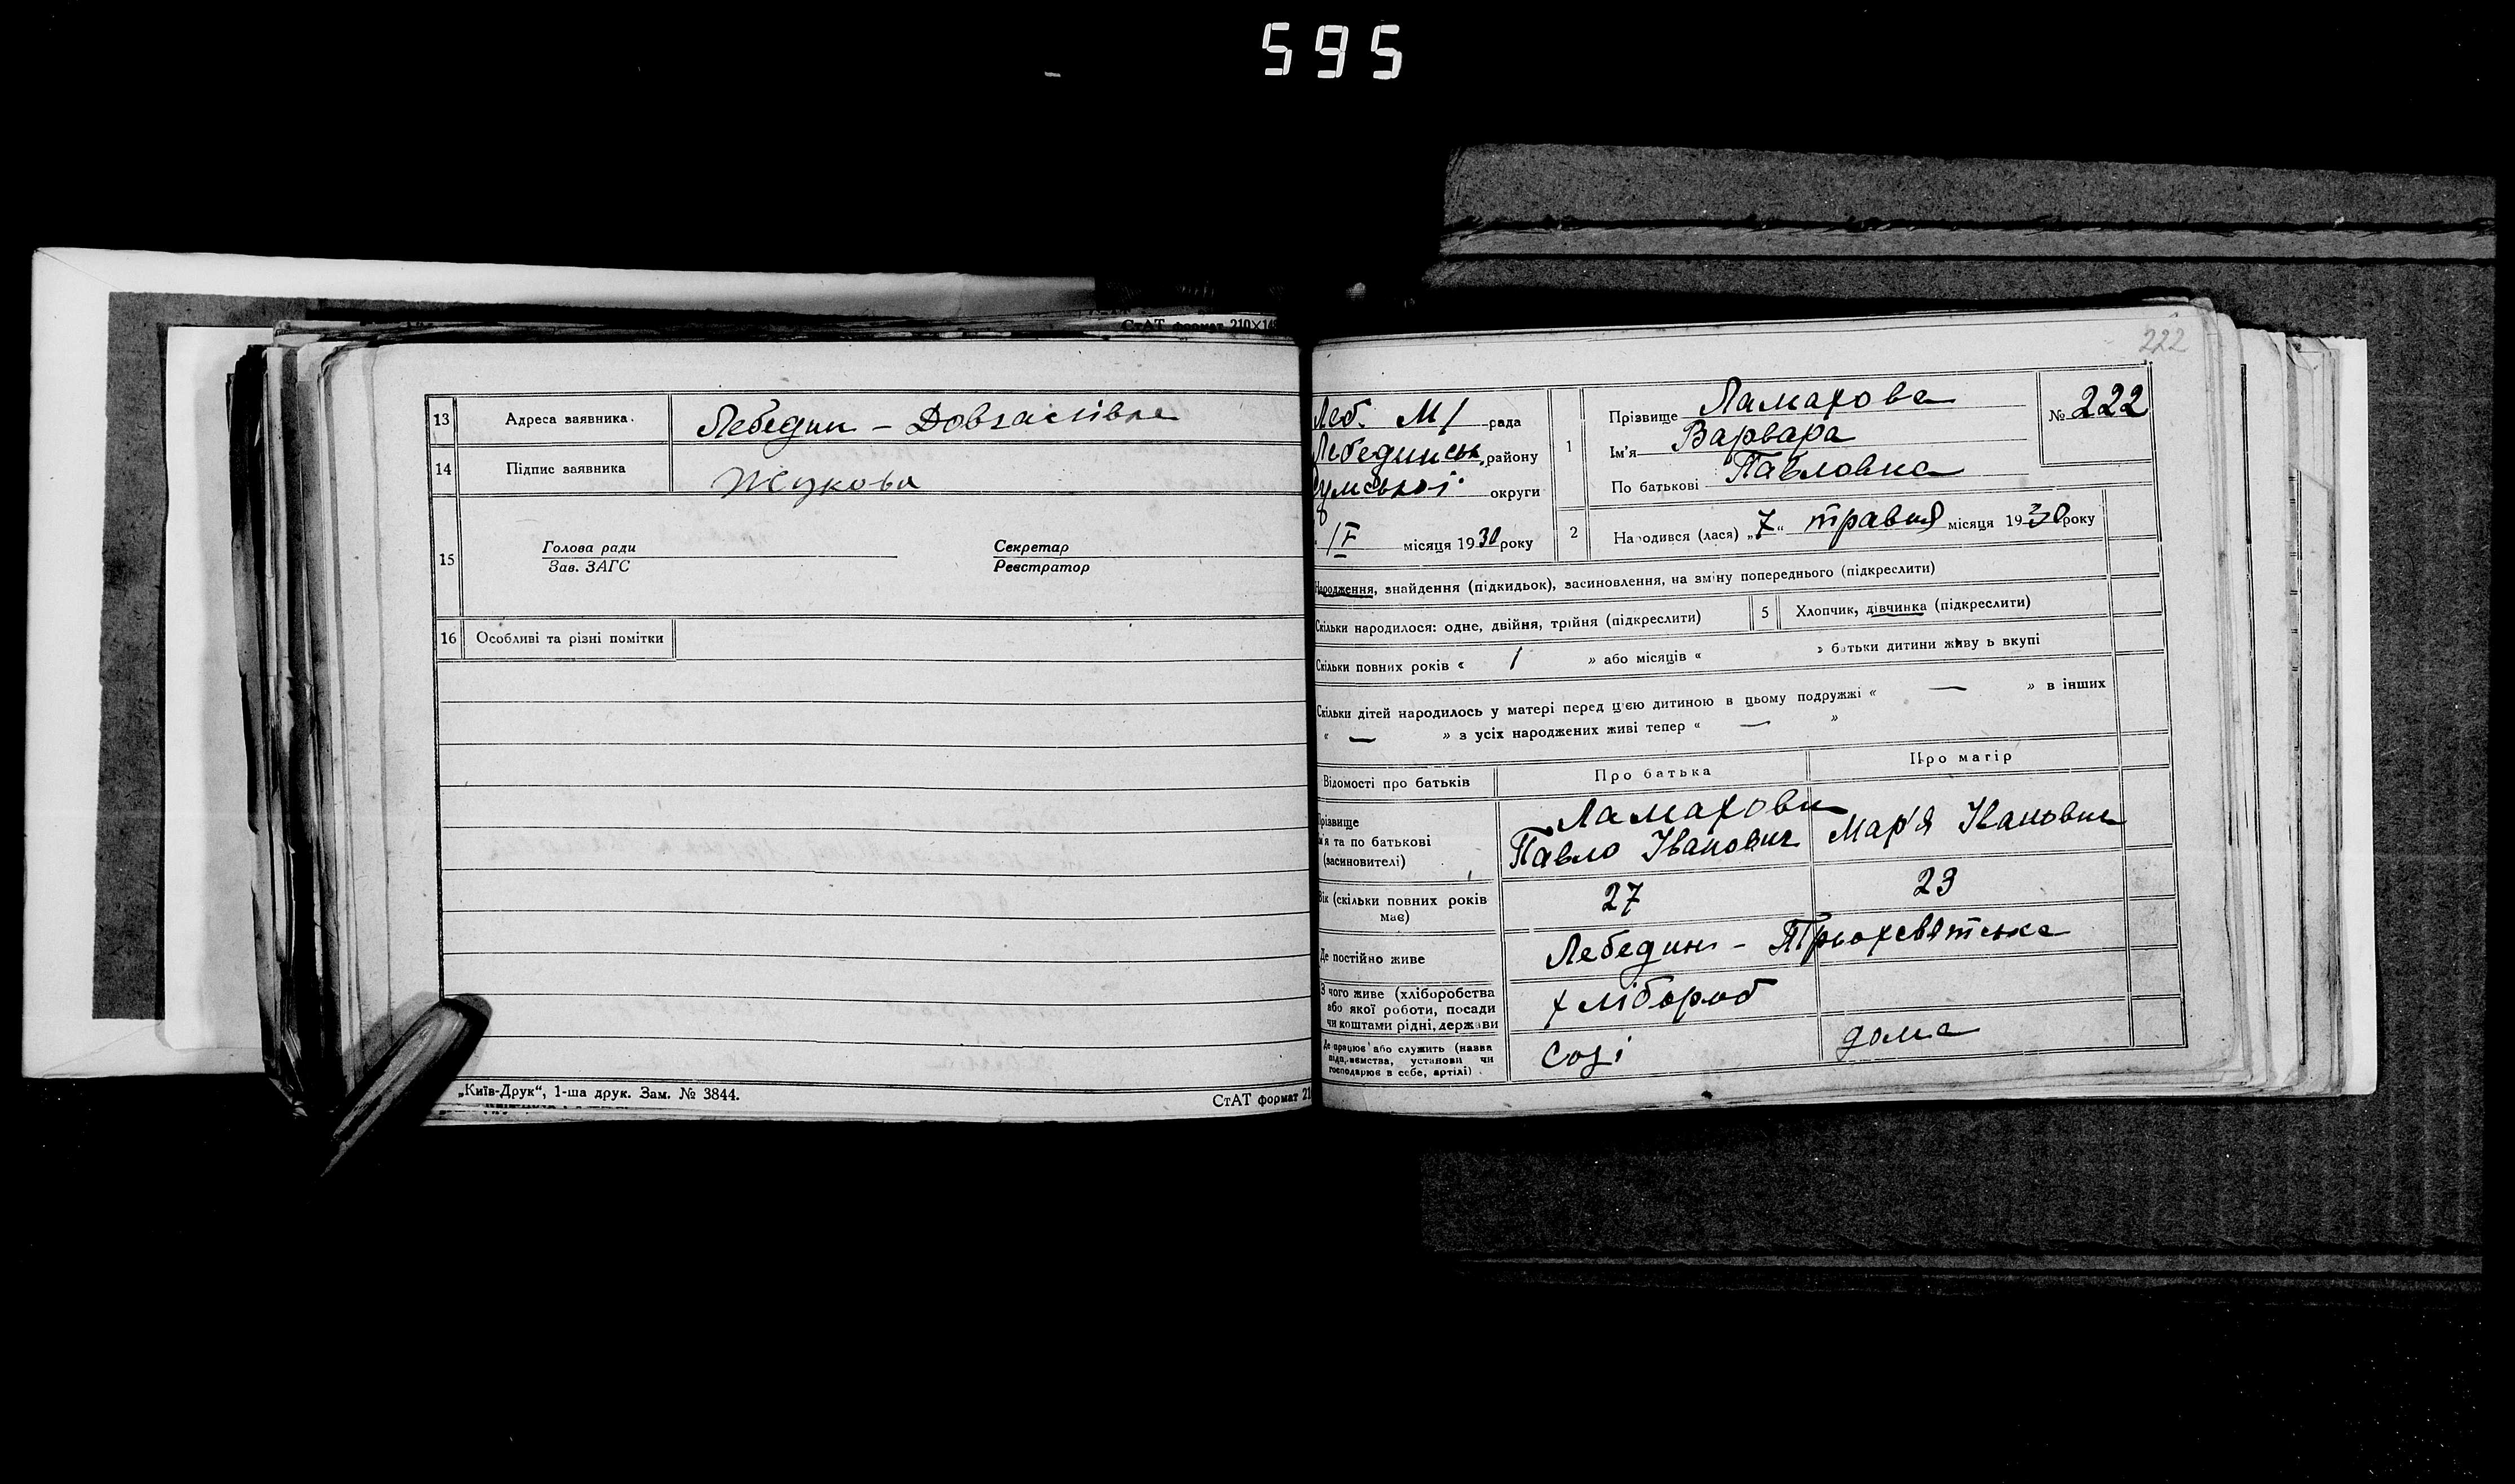 595
СтАТ формат 210×14
13 Адреса заявника. Лебедин –
14 Підпис заявника Жукова
15 Голова ради Секретар
Зав. ЗАГС Реєстратор
16 Особливі та різні помітки
„Київ-Друк“, 1-ша друк. Зам. № 3844.
СтАТ формат 21
222
Леб. М/ рада
Лебединськ. району
Сумської округи
місяця 1930 року
1 Прізвище Ламахова
Ім'я Варвара
По батькові Павловна
№ 222
2 Народився (лася) „7“ травня місяця 1930 року
Народження, знайдення (підкидьок), засиновлення, на зміну попереднього (підкреслити)
Скільки народилося: одне, двійня, трійня (підкреслити) 5 Хлопчик, дівчинка (підкреслити)
Скільки повних років « 1 » або місяців « » батьки дитини живу ь вкупі
Скільки дітей народилось у матері перед цією дитиною в цьому подружжі « — » в інших
« — » з усіх народжених живі тепер « — »
Відомості про батьків Про батька Про матір
Прізвище Ламахови
ім'я та по батькові Павло Іванович Мар'я Івановна
(засиновителі)
Вік (скільки повних років 27 23
має)
Де постійно живе Лебедин – Трьохсвятська
З чого живе (хліборобства хлібороб
або якої роботи, посади
чи коштами рідні, держави
Де працює або служить (назва созі дома
підприємства, установи чи
господарює в себе, артілі)